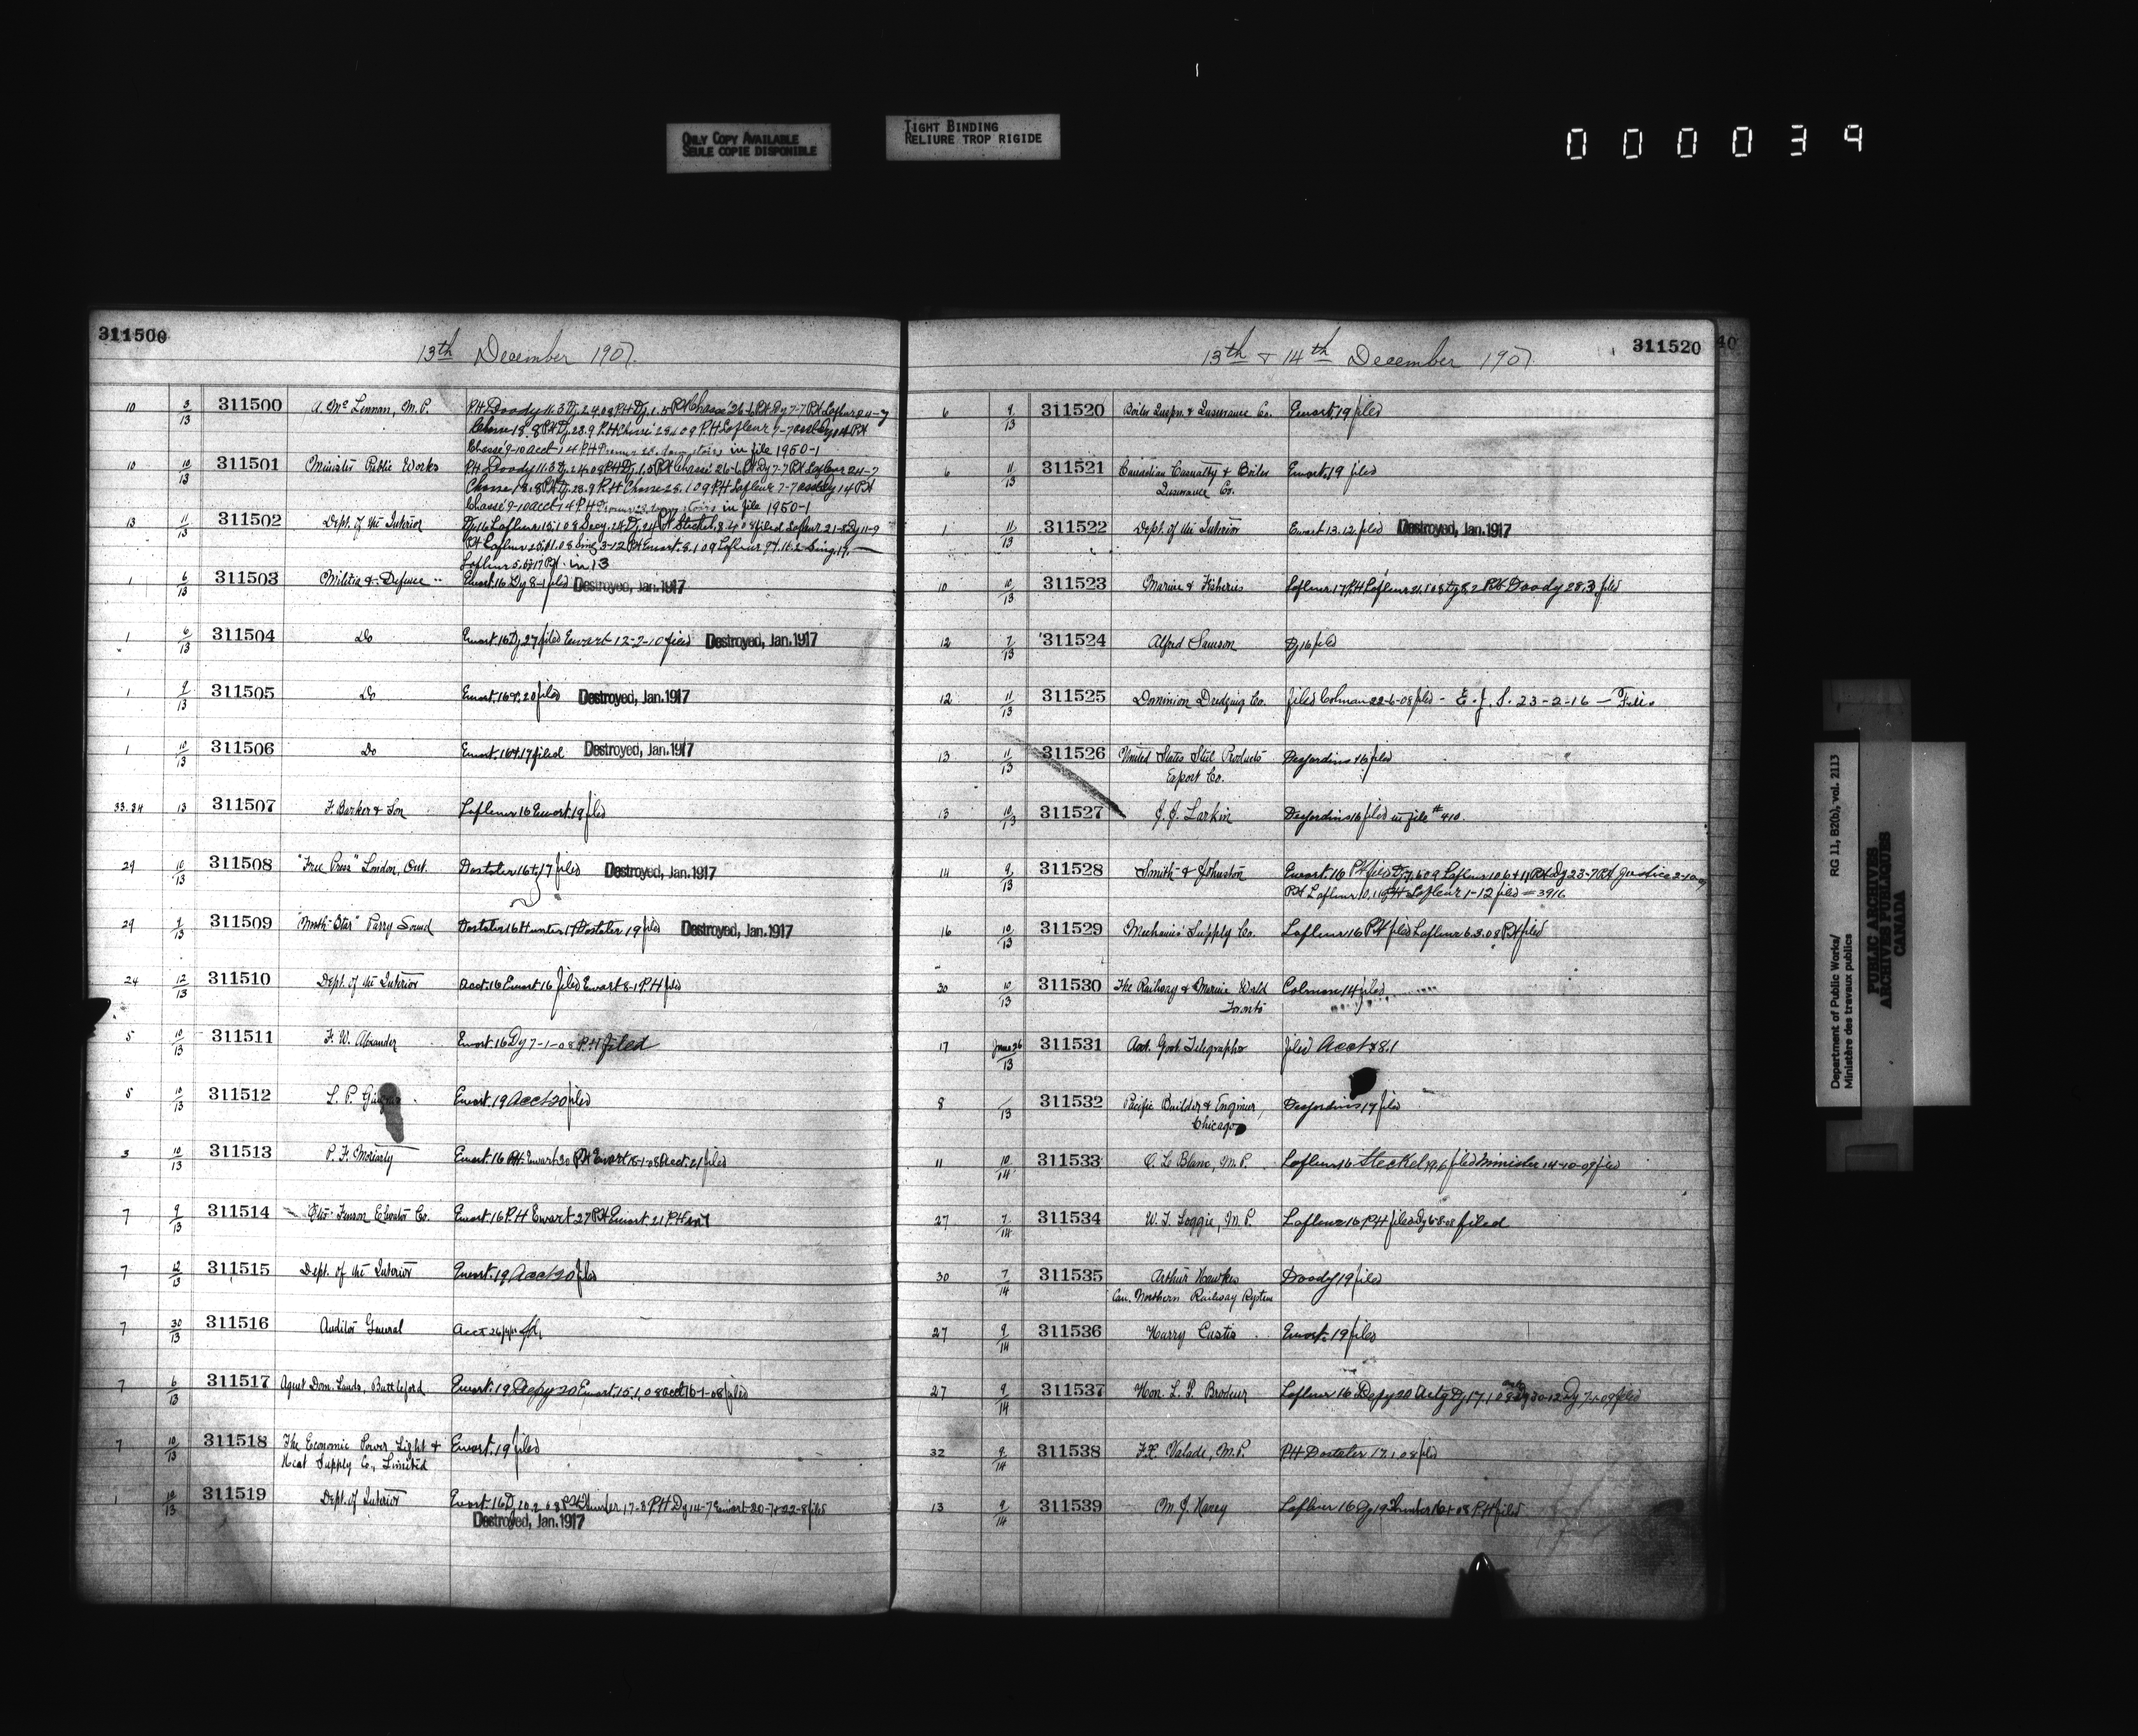 ONLY COPY AVAILABLE
SEULE COPIE DISPONIBLE
TIGHT BINDING
RELIURE TROP RIGIDE
000039
311500
13th December 1907.
10 3/13 311500 A. McLennan, M.P. P.H Doody 11.3
in file 1950-1
10 10/13 311501 Minister Public Works P.H Doody 11.3
in file 1950-1
13 11/13 311502 Dept. of the Interior
in 13
1 6/13 311503 Militia & Defence Ewart. 16 Dy 8-1 filed Destroyed, Jan. 1917
1 6/13 311504 Do Ewart. 16 Dy 27 filed Ewart 12-2-10 filed Destroyed, Jan. 1917
1 9/13 311505 Do Ewart. 16 filed Destroyed, Jan. 1917
1 10/13 311506 Do Ewart. 16 filed Destroyed, Jan. 1917
33.34 13 311507 F. Barker & Son Lafleur 16 Ewart. 19 filed
29 10/13 311508 "Free Press" London, Ont. Dostaler 16 filed Destroyed, Jan. 1917
29 9/13 311509 "North Star" Parry Sound Dostaler 16 Hunter 17 Dostaler 19 filed Destroyed, Jan. 1917
24 12/13 311510 Dept. of the Interior Acct. 16 Ewart 16 filed Ewart 8-1 P.H filed
5 10/13 311511 F. W. Alexander Ewart. 16 Dy 7-1-08 P.H filed
5 10/13 311512 L. P. Ewart. 19 Acct 20 filed
3 10/13 311513 P. F. Moriarty Ewart. 16 P.H. Ewart 30 P.H Ewart 15-1-08 Acct. 21 filed
7 9/13 311514 Fenson Elevator Co. Ewart. 16 P.H Ewart 27 P.H Ewart. 21 P.H
7 12/13 311515 Dept. of the Interior Ewart. 19 Acct 20 filed
7 30/13 311516 Auditor General Acct
7 6/13 311517 Agent Dom. Lands, Battleford Ewart. 19 Depy 20 Ewart 15.1.08 acct 16-1-08 filed
7 10/13 311518 The Economic Power, Light & Ewart. 19 filed
Heat Supply Co., Limited
1 10/13 311519 Dept. of Interior Ewart. 16 Hunter 17-3 P.H Dy 14-7 Ewart filed
Destroyed, Jan. 1917
13th & 14th December 1907
311520
40
6 9/13 311520 Boiler Inspn. & Insurance Co. Ewart. 19 filed
6 11/13 311521 Canadian Casualty & Boiler Ewart. 19 filed
Insurance Co.
1 11/13 311522 Dept. of the Interior Ewart 13.12 filed Destroyed, Jan. 1917
10 10/13 311523 Marine & Fisheries Lafleur 17 P.H Lafleur P.H Doody 28.3 filed
12 7/13 311524 Alfred Samson Dy 16 filed
12 11/13 311525 Dominion Dredging Co. filed Colman 22-6-08 filed - E. J. S. 23-2-16 - File.
13 11/13 311526 United States Steel Products Desjardins 16 filed
Export Co.
13 10/13 311527 J. J. Larkin Desjardins 16 filed in file # 410.
14 9/13 311528 Smith & Johnston Ewart. 16 P.H filed
P.H Lafleur P.H Lafleur 1-12 filed = 3916
16 10/13 311529 Mechanics Supply Co. Lafleur 16 P.H filed Lafleur 6.3.08 P.H filed
30 10/13 311530 The Railway & Marine World Colman 14 filed
Toronto
17 June 26/13 311531 Asst. Govt. Telegraphs filed Acct 8.1
8 /13 311532 Pacific Builder & Engineer, Desjardins 17 filed
Chicago
11 10/14 311533 O. Le Blanc, M.P. Lafleur 16 Steckel 19.6 filed Minister 14-10-09 filed
27 7/14 311534 W. S. Loggie, M.P. Lafleur 16 P.H filed Dy 6-8-08 filed
30 7/14 311535 Arthur Hawkes Doody 19 filed
Can. Northern Railway System
27 9/14 311536 Harry Custis Ewart. 19 filed
27 9/14 311537 Hon. L. P. Brodeur Lafleur 16 Depy 20 Actg Dy 17.1.08 filed
32 9/14 311538 F.X. Valade, M.P. P.H Dostaler 17.1.08 filed
13 9/14 311539 M. J. Haney Lafleur 16 Dy 19 P.H filed
Department of Public Works/
Ministère des travaux publics
RG 11, B2(b), vol. 2113
PUBLIC ARCHIVES
ARCHIVES PUBLIQUES
CANADA